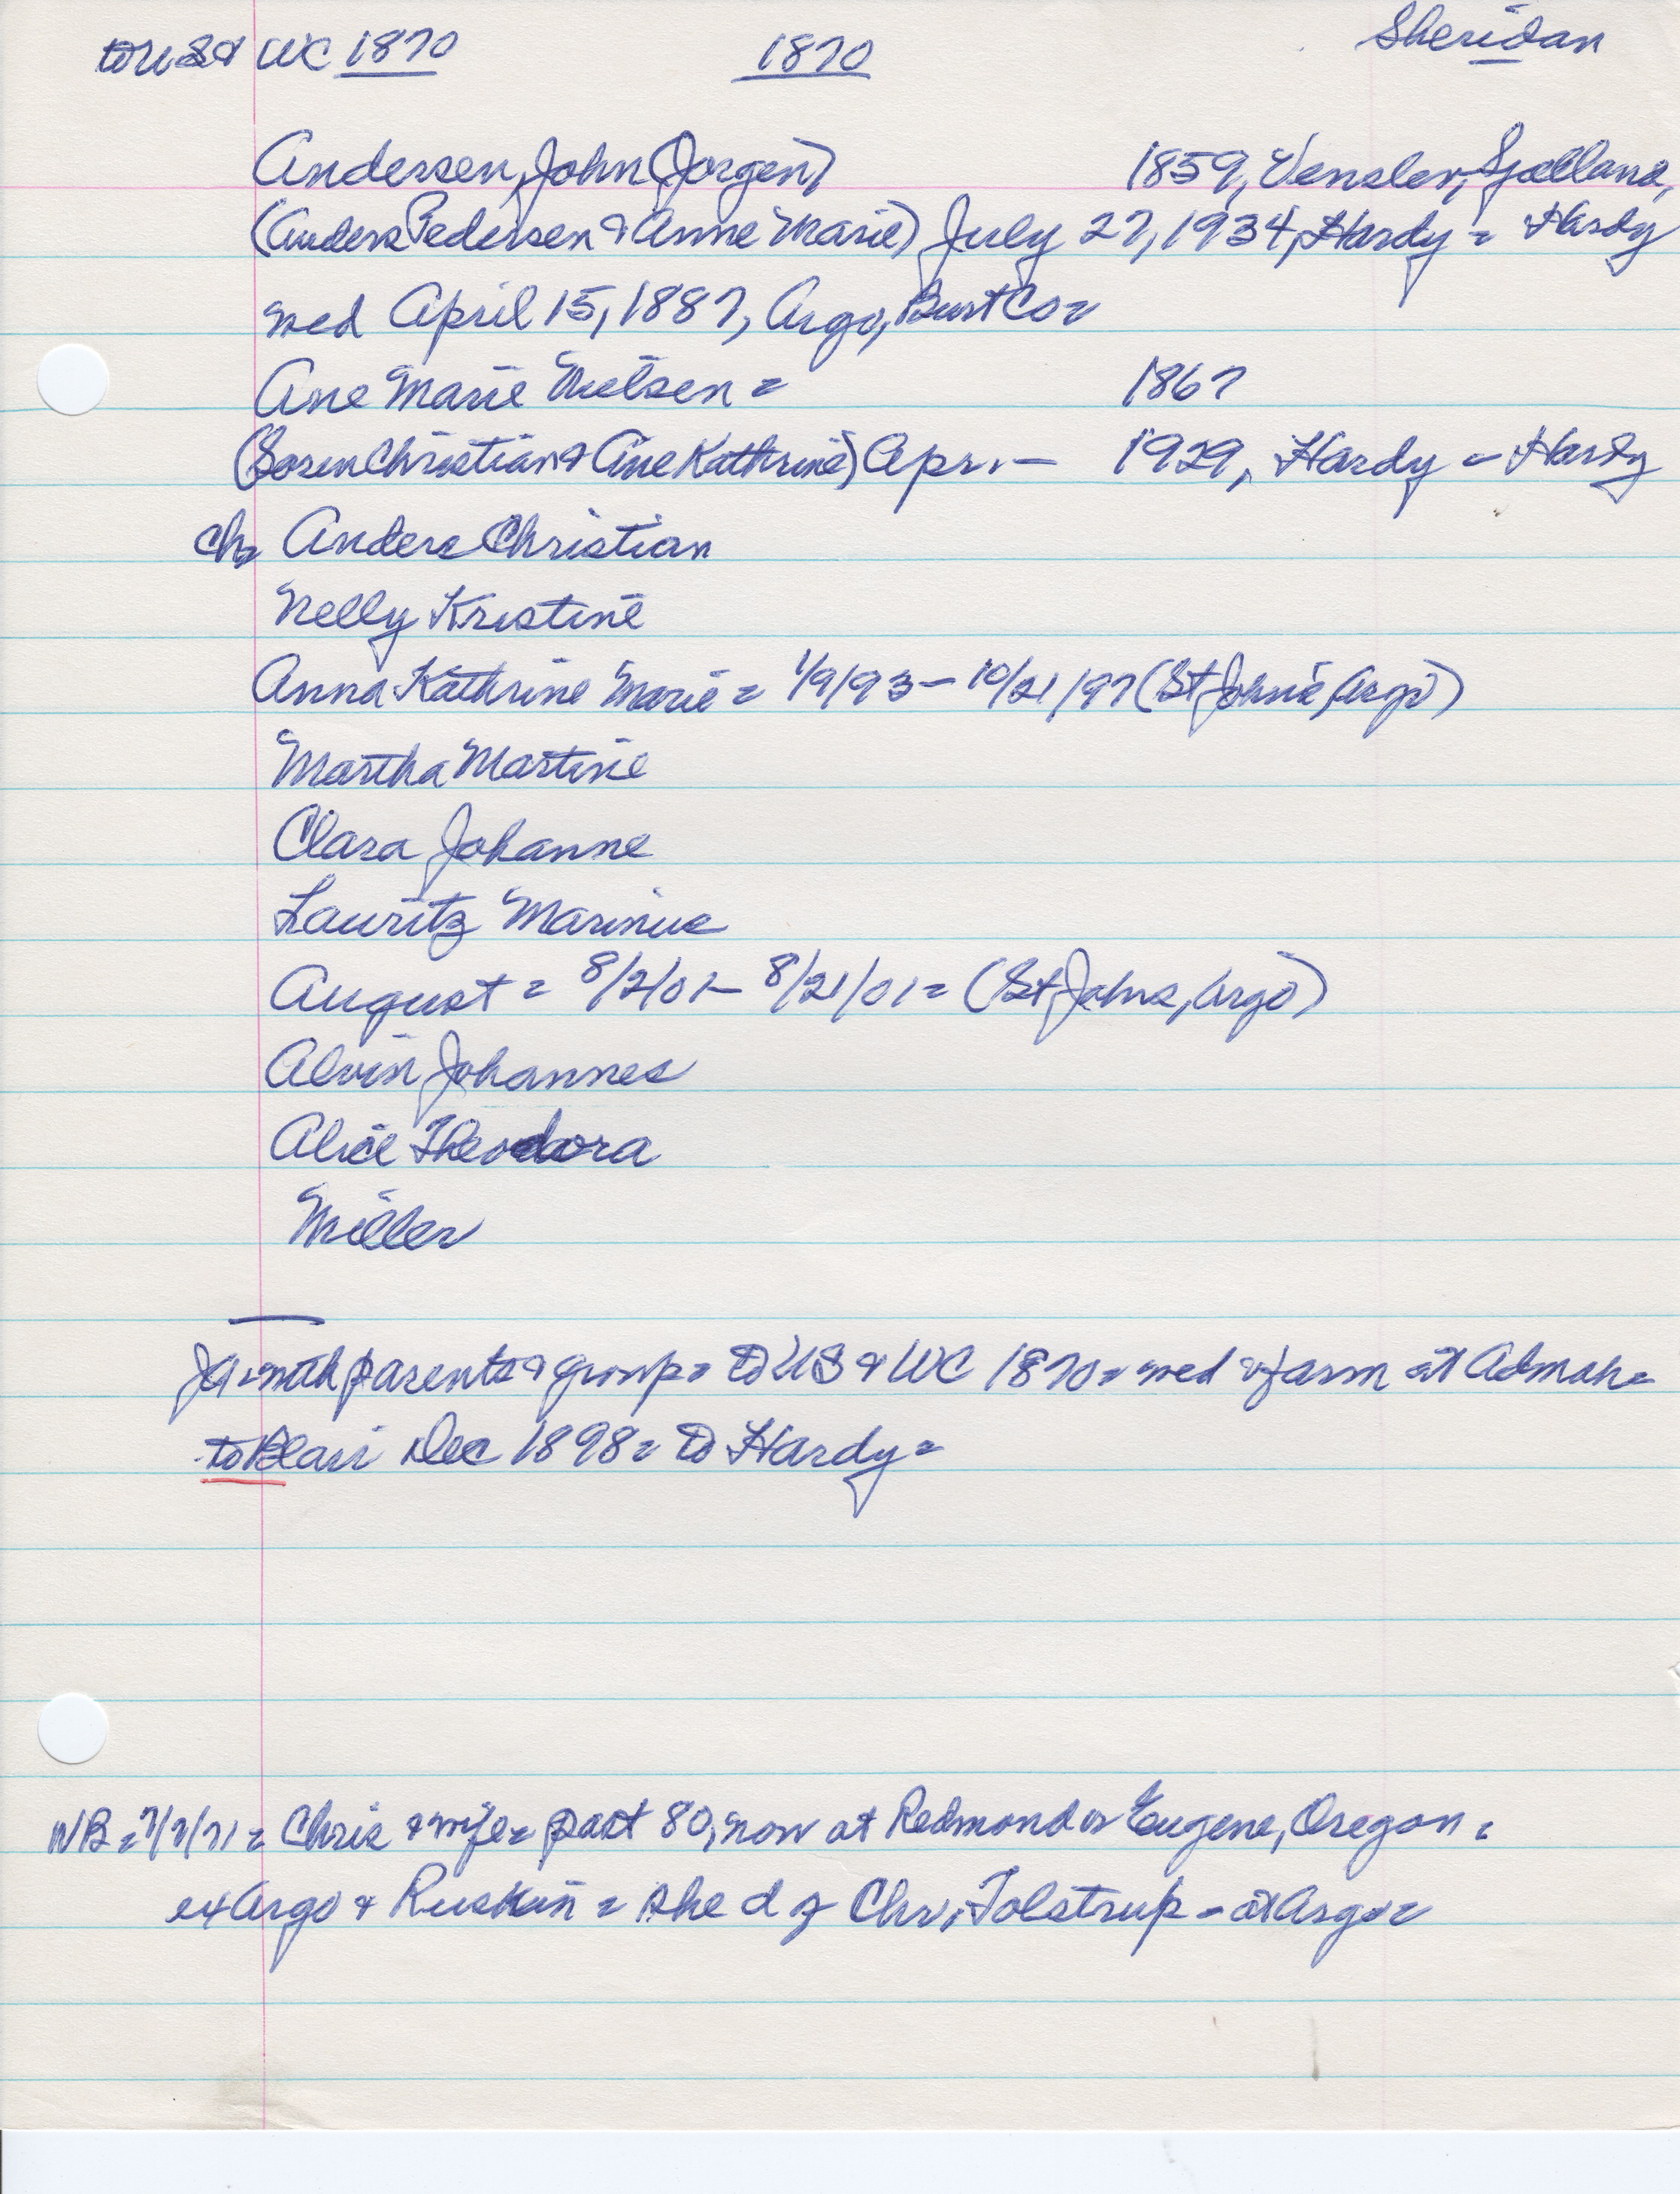 to US & WC 1870 1870 Sheridan
Andersen, John (Jorgen) 1859, Venslev, Sjælland,
(Anders Pedersen & Anne Marie) July 27, 1934, Hardy = Hardy
med April 15, 1887, Argo, Burt Co =
Ane Marie Nielsen = 1867
(Soren Christian & Ane Kathrine) Apr. — 1929, Hardy = Hardy
ch= Anders Christian
Nelly Kristine
Anna Kathrine Marie = 1/9/93 – 10/21/97 (St John's, Argo)
Martha Martine
Clara Johanne
Lauritz Marinus
August = 8/2/01 – 8/21/01 = (St Johns, Argo)
Alvin Johannes
Alice Theodora
Miller
with parents & group = to US & WC 1870 = med & farm at Admah =
to Blair Dec 1898 = to Hardy =
NB = 7/7/71 = Chris & wife = past 80, now at Redmond or Eugene, Oregon =
ex Argo & Ruskin = she d of Chr. Tolstrup = at Argo =